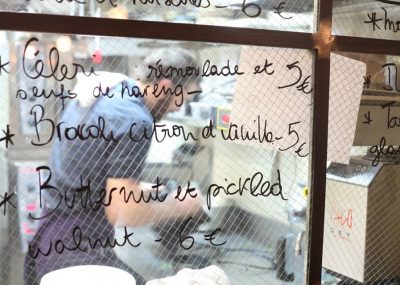 et noisettes - 6 €
* Céleri rémoulade et 5€
œufs de hareng -
* Brocoli citron et vanille - 5€
* Butternut et pickled
walnut - 6 €
*
*
* Ta
gla